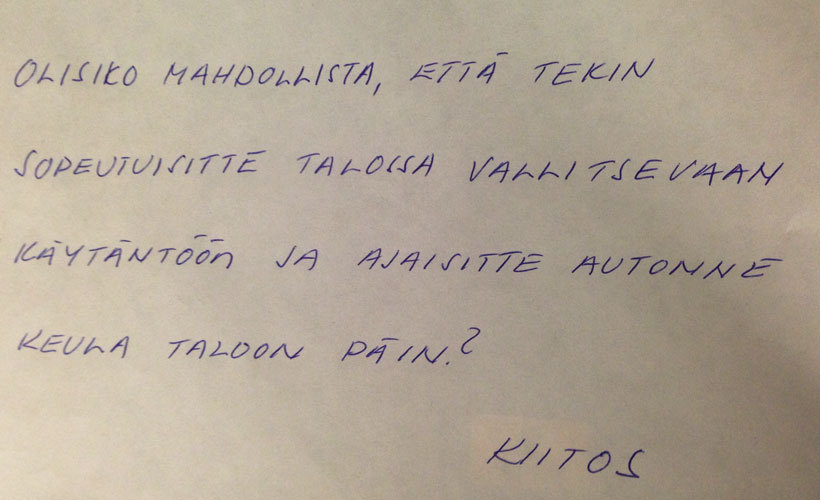 OLISIKO MAHDOLLISTA, ETTÄ TEKIN
SOPEUTUISITTE TALOSSA VALLITSEVAAN
KÄYTÄNTÖÖN JA AJAISITTE AUTONNE
KEULA TALOON PÄIN?
KIITOS